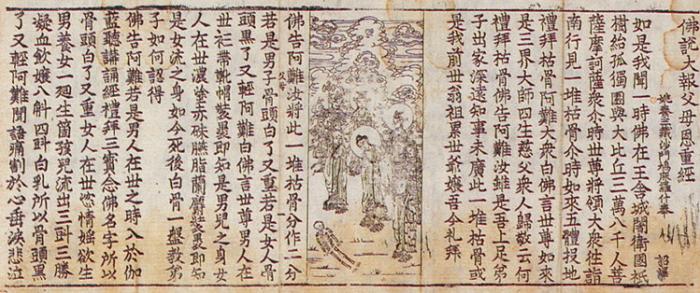 佛說大報父母恩重經
姚秦三藏沙門鳩摩羅什奉 詔譯
如是我聞一時佛在王舍城闍衛國祇
樹給孤獨園與大比丘三萬八千人菩
薩摩訶薩衆尒時世尊將領大衆徃詣
南行見一堆枯骨尒時如來五體投地
禮拜枯骨阿難大衆白佛言世尊如來
是三界大師四生慈父衆人歸敬云何
禮拜枯骨佛告阿難汝雖是吾上足弟
子出家深遠知事未廣此一堆枯骨或
是我前世翁祖累世爺孃吾今礼拜
佛告阿難汝將此一堆枯骨分作二分
若是男子骨頭白了又重若是女人骨
頭黒了又輕阿難白佛言世尊男人在
世衫帶靴帽裝裹即知是男兒之身女
人在世濃塗赤硃臙脂蘭麝裝裹即知
是女流之身如今死後白骨一盤敎弟
子如何認得
佛告阿難若是男人在世之時入於伽
藍聽講誦經禮拜三寳念佛名字所以
骨頭白了又重女人在世恣情婬欲生
男養女一廻生箇孩兒流出三㪷三勝
凝血飲孃八斛四㪷白乳所以骨頭黒
了又輕阿難聞語痛割於心垂淚悲泣